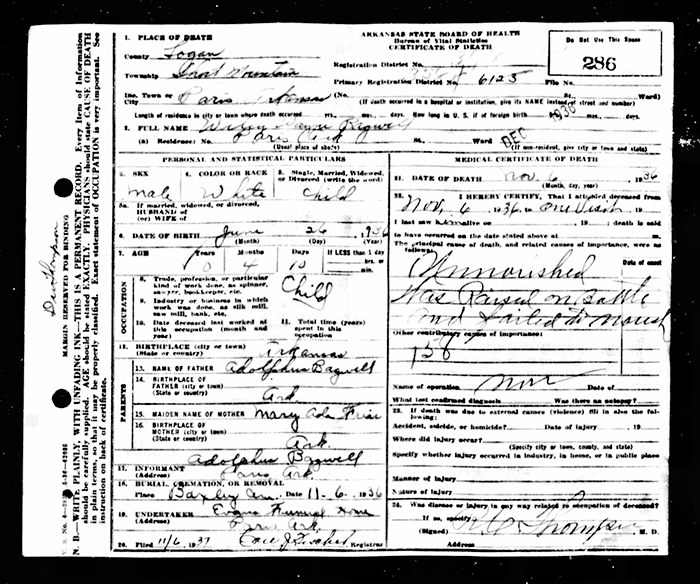 ARKANSAS STATE BOARD OF HEALTH
Bureau of Vital Statistics
CERTIFICATE OF DEATH
Do Not Use This Space
286
1. PLACE OF DEATH
County Logan
Township Short Mountain
Registration District No.
Primary Registration District No. 6125 File No.
Inc. Town or City Paris Arkansas (No. St. Ward)
(If death occurred in a hospital or institution, give its NAME instead of street and number)
Length of residence in city or town where death occurred yrs. mos. days. How long in U. S. if of foreign birth yrs. mos. days.
2. FULL NAME Wayne Bagwell
DEC 1936
(a) Residence: No. Paris Ark St. Ward
(Usual place of abode) (If non-resident, give city or town and state)
PERSONAL AND STATISTICAL PARTICULARS
3. SEX
male
4. COLOR OR RACE
White
5. Single, Married, Widowed, or Divorced (write the word)
Child
5a. If married, widowed, or divorced,
HUSBAND of
(or) WIFE of
6. DATE OF BIRTH June 26 1936
(Month) (Day) (Year)
7. AGE Years Months Days If LESS than 1 day
0 4 10 hrs. or min.
OCCUPATION
8. Trade, profession, or particular kind of work done, as spinner, sawyer, bookkeeper, etc.
Child
9. Industry or business in which work was done, as silk mill, saw mill, bank, etc.
10. Date deceased last worked at this occupation (month and year)
11. Total time (years) spent in this occupation
12. BIRTHPLACE (city or town)
(State or country) Arkansas
PARENTS
13. NAME OF FATHER Adolphus Bagwell
14. BIRTHPLACE OF FATHER (city or town)
(State or country) Ark
15. MAIDEN NAME OF MOTHER Mary
16. BIRTHPLACE OF MOTHER (city or town)
(State or country) Ark.
17. INFORMANT Adolphus Bagwell
(Address) Paris Ark.
18. BURIAL, CREMATION, OR REMOVAL
Place Baxley Date 11-6, 1936
19. UNDERTAKER Evans Funeral Home
(Address) Paris Ark
20. Filed 11/6 1937 Registrar
MEDICAL CERTIFICATE OF DEATH
21. DATE OF DEATH Nov. 6 1936
(Month, day, year)
22. I HEREBY CERTIFY, That I attended deceased from
Nov, 6 1936, to One Visit, 19
I last saw him alive on , 19 ; death is said
to have occurred on the date stated above at m.
The principal cause of death, and related causes of importance, were as follows:
Date of onset
Unnourished
Was Raised on Bottle
and Failed to nourish
Other contributory causes of importance:
158
Name of operation None Date of
What test confirmed diagnosis? Was there an autopsy?
23. If death was due to external causes (violence) fill in also the following:
Accident, suicide, or homicide? Date of injury 19
Where did injury occur?
(Specify city or town, county, and state)
Specify whether injury occurred in industry, in home, or in public place
Manner of injury
Nature of injury
24. Was disease or injury in any way related to occupation of deceased?
If so, specify
(Signed) Thompson M. D.
Address
MARGIN RESERVED FOR BINDING
N. B.—WRITE PLAINLY, WITH UNFADING INK—THIS IS A PERMANENT RECORD. Every item of information should be carefully supplied. AGE should be stated EXACTLY. PHYSICIANS should state CAUSE OF DEATH in plain terms, so that it may be properly classified. Exact statement of OCCUPATION is very important. See instruction on back of certificate.